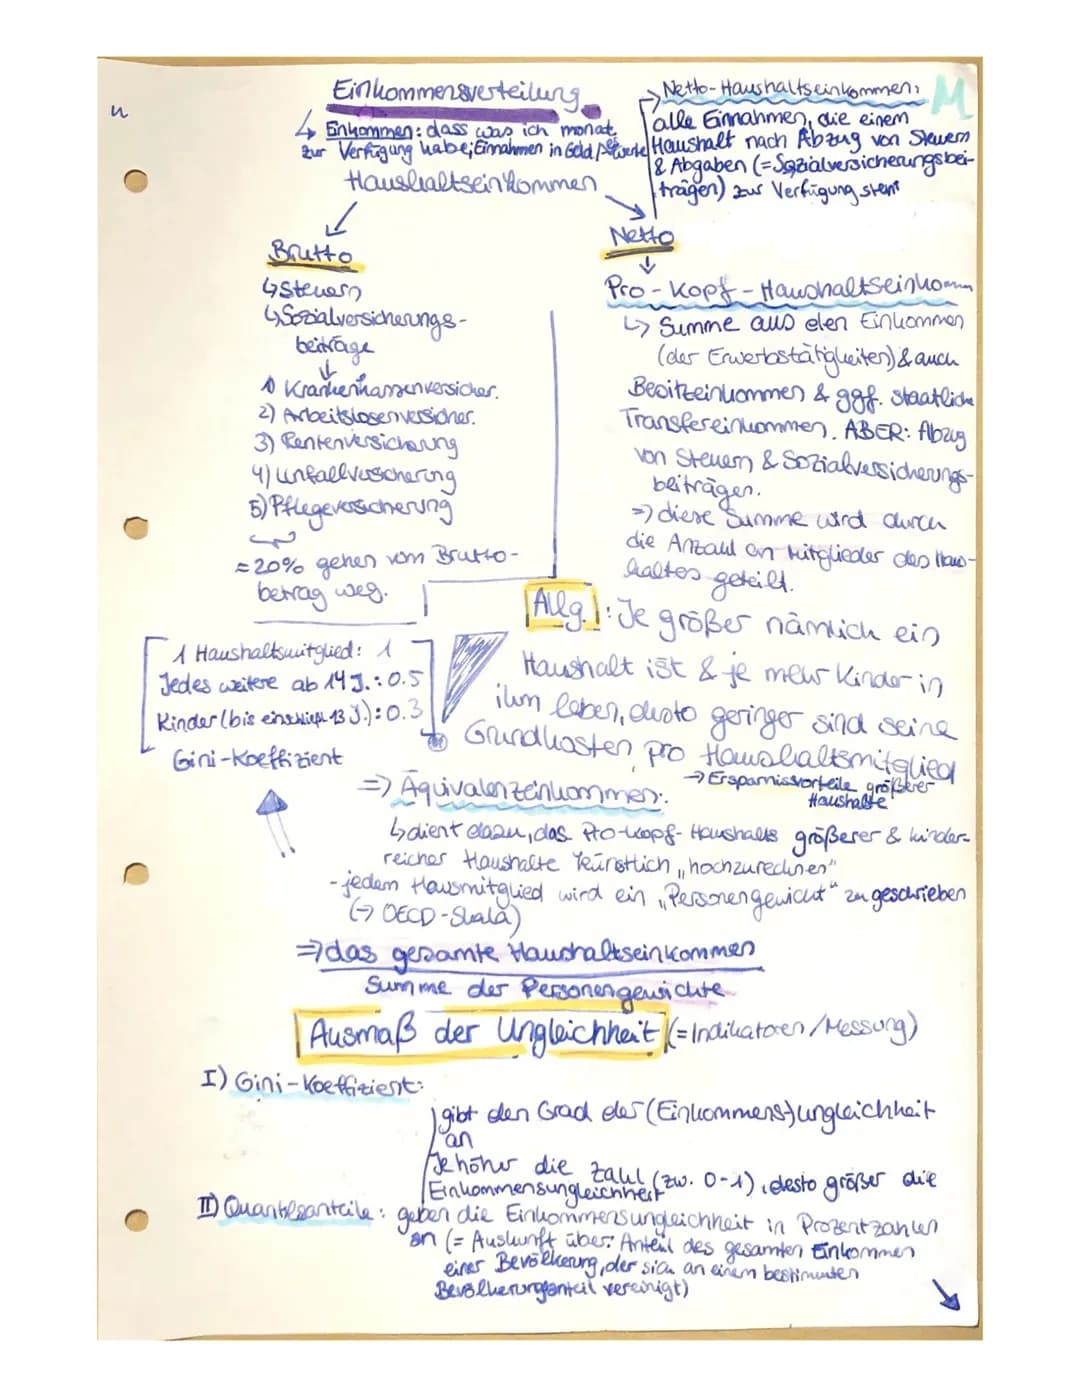 Einkommensverteilung
↳ Einkommen: dass was ich monatl.
zur Verfügung habe; Einnahmen in Geld/
Haushaltseinkommen
Netto-Haushaltseinkommen:
alle Einnahmen, die einem
Haushalt nach Abzug von Steuern
& Abgaben (=Sozialversicherungsbei-
trägen) zur Verfügung steht
M
Brutto
↳ Steuern
↳ Sozialversicherungs-
beiträge
1) Krankenkassenversicher.
2) Arbeitslosenversicher.
3) Rentenversicherung
4) Unfallversicherung
5) Pflegeversicherung
≈ 20% gehen vom Brutto-
betrag weg.
Netto
Pro-Kopf-Haushaltseinkomm
↳ Summe aus den Einkommen
(der Erwerbstätigkeiten) & auch
Besitzeinkommen & ggf. staatliche
Transfereinkommen. ABER: Abzug
von Steuern & Sozialversicherungs-
beiträgen.
=> diese Summe wird durch
die Anzahl an Mitglieder des Haus-
haltes geteilt.
Allg.: Je größer nämlich ein
Haushalt ist & je mehr Kinder in
ihm leben, desto geringer sind seine
Grundkosten pro Haushaltsmitglied
→ Ersparnisvorteile größerer
Haushalte
1 Haushaltsmitglied: 1
Jedes weitere ab 14 J.: 0.5
Kinder (bis einschließl. 13 J.): 0.3
Gini-Koeffizient
=> Äquivalenzeinkommen:
↳ dient dazu, das Pro-Kopf-Haushalts größerer & kinder-
reicher Haushalte künstlich „hochzurechnen"
- jedem Hausmitglied wird ein „Personengewicht" zu geschrieben
(→ OECD-Skala)
=> das gesamte Haushaltseinkommen
Summe der Personengewichte
Ausmaß der Ungleichheit (=Indikatoren/Messung)
I) Gini-Koeffizient:
gibt den Grad der (Einkommens-)ungleichheit
an
Je höher die Zahl (zw. 0-1), desto größer die
Einkommensungleichheit
II) Quantilsanteile: geben die Einkommensungleichheit in Prozentzahlen
an (= Auskunft über: Anteil des gesamten Einkommen
einer Bevölkerung, der sich an einem bestimmten
Bevölkerungsanteil vereinigt)